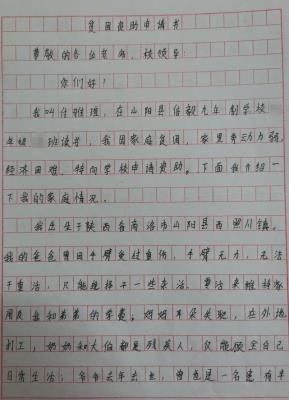 贫困资助申请书
尊敬的各位老师、校领导:
你们好!
我叫任雅理,在山阳县伯毅九年制学校
年级 班读书,我因家庭贫困,家里劳动力弱,
经济困难,特向学校申请资助。下面我介绍一
下我的家庭情况。
我出生于陕西省商洛市山阳县西照川镇。
我的爸爸曾因手臂受过重伤,手臂无力,无法
干重活,只能现择干一些杂活,靠活来维持家
用及我和弟弟的学费;妈妈耳朵失聪,在外地
打工;奶奶和大伯都是残疾人,只能顾全自己
日常生活;爷爷去年去世,曾也是一名建